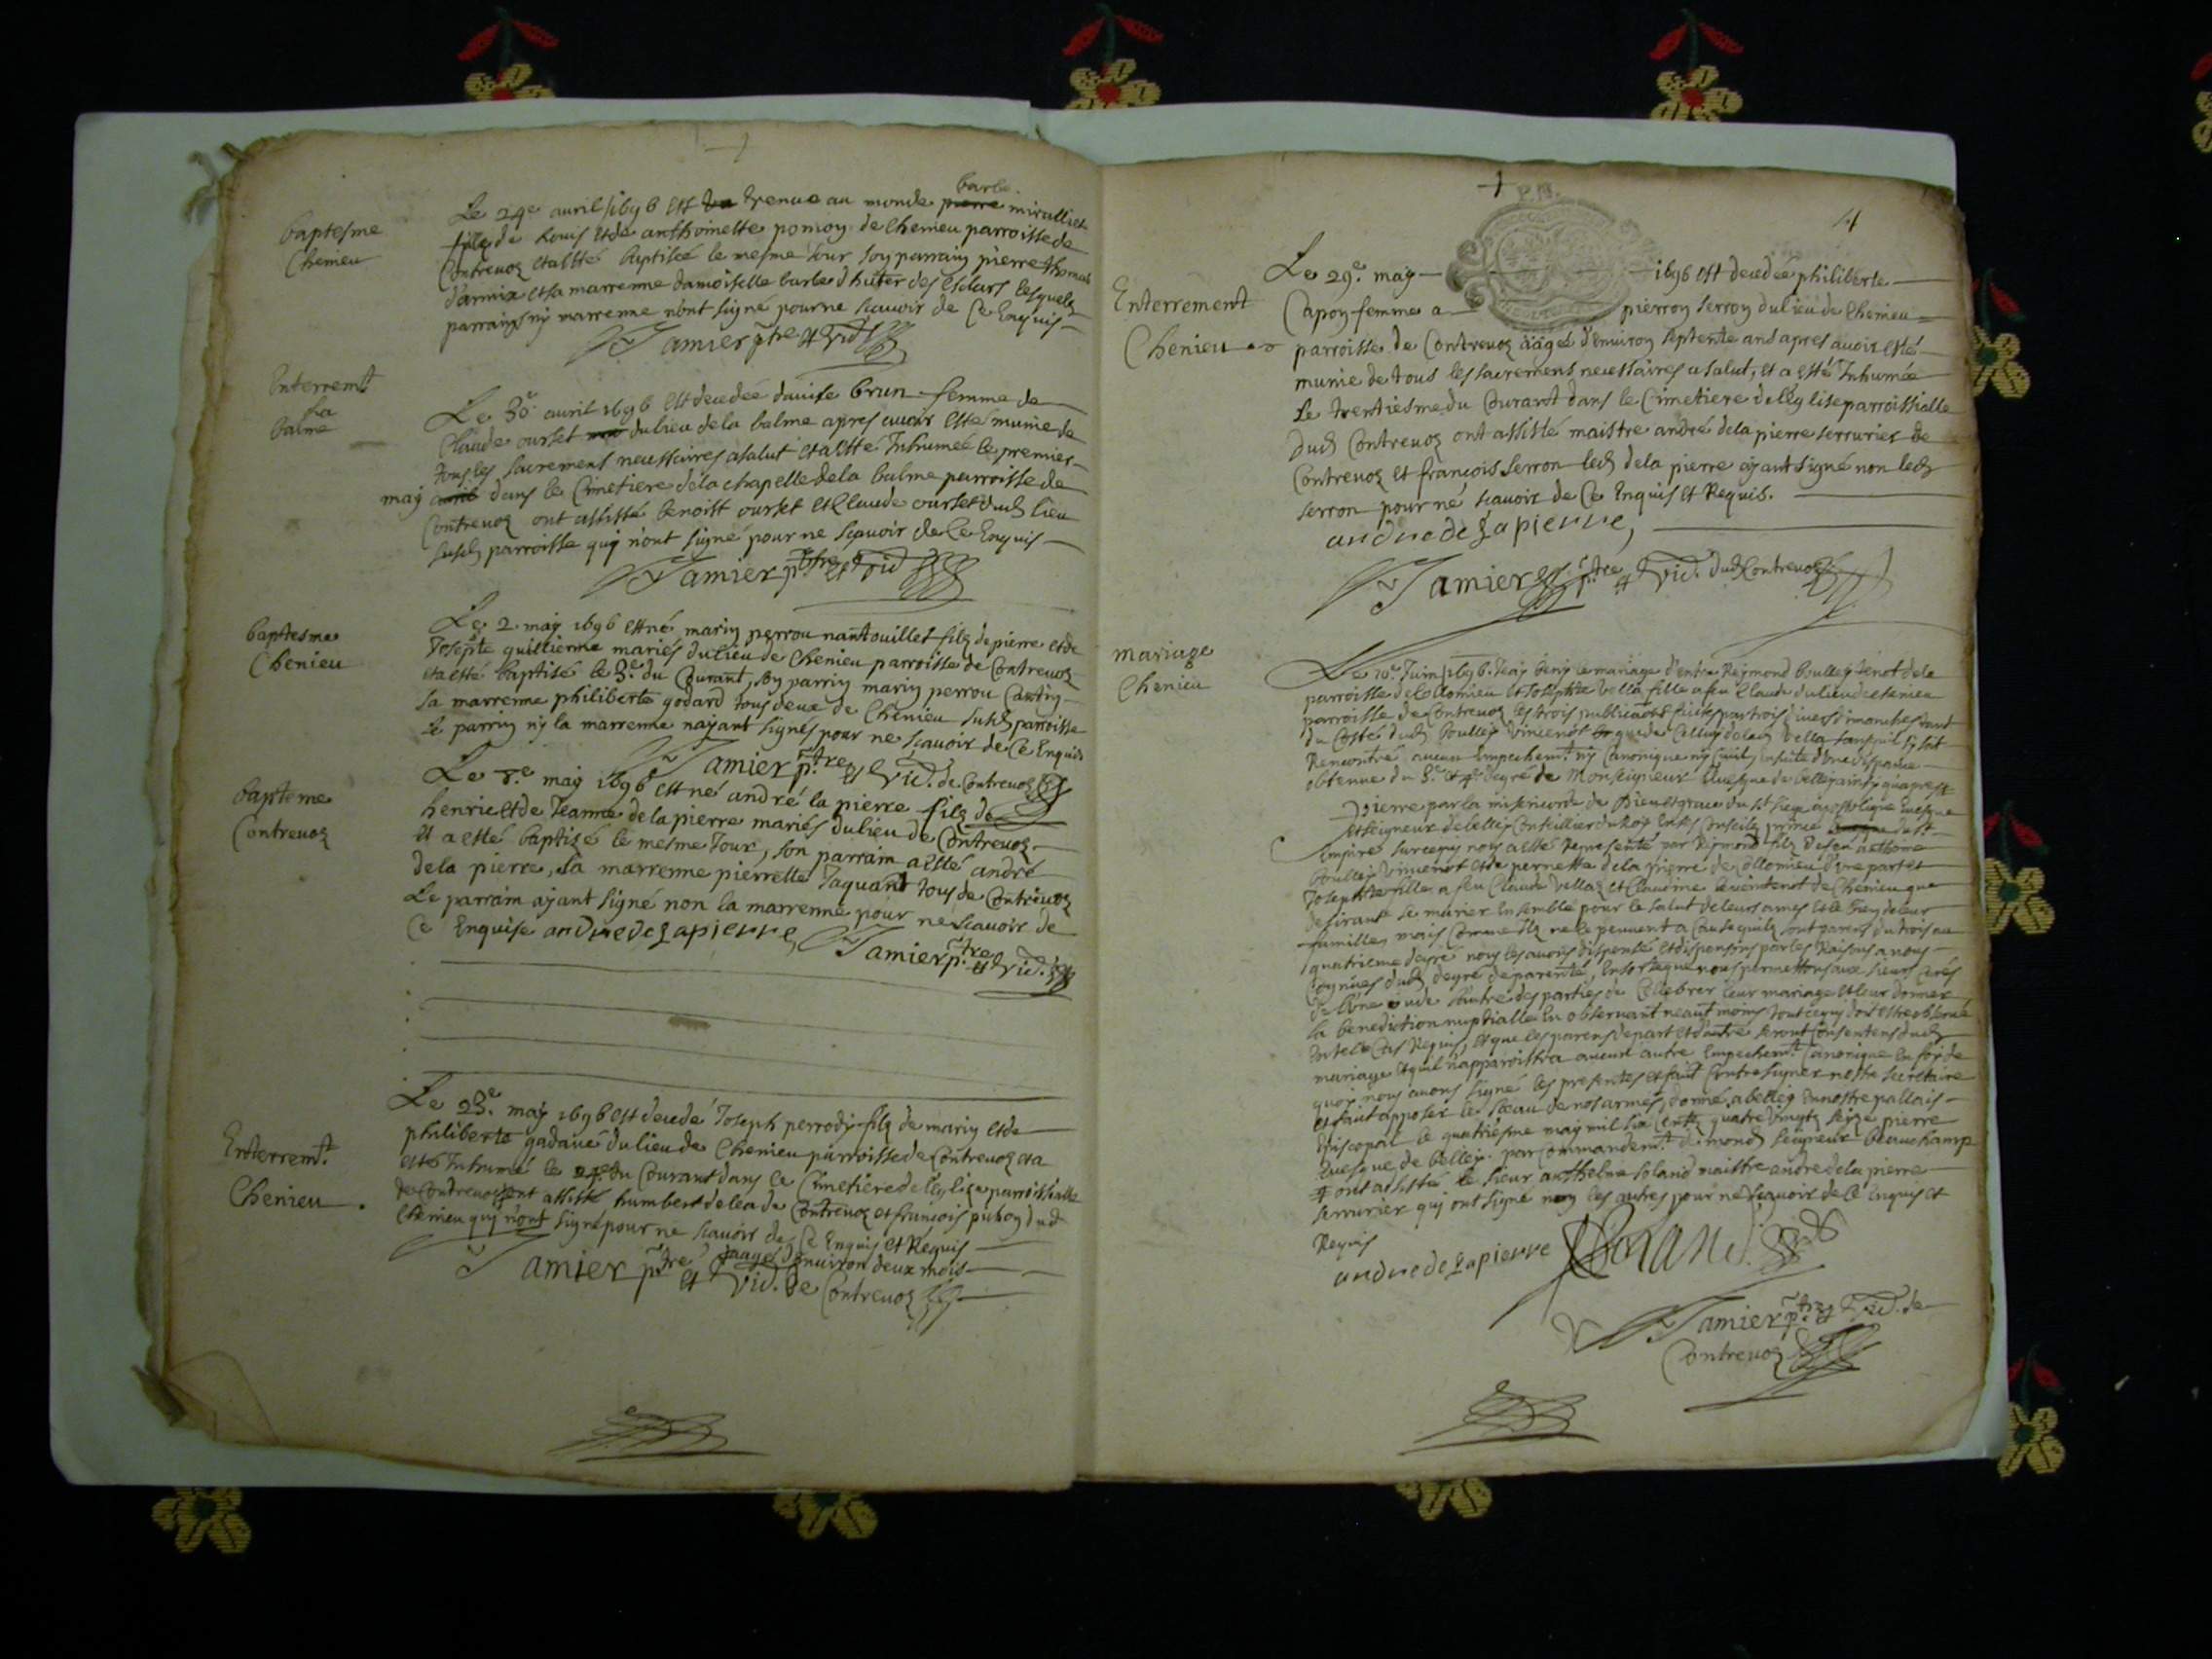 baptesme
Chenieu
Le 24e auril 1696 est venue au monde barbe miralliet
fille de Louis et de anthoinette pomoy de Chenieu parroisse de
Contreuoz et a esté baptisée le mesme Jour son parrain pierre thomas
d'armix et sa marrenne damoiselle barbe d'huter des esclars lesquels
parrain ny marrenne n'ont signé pour ne scauoir de ce Enquis
Tamier ptre et vic
Enterremt
La
balme
Le 30 auril 1696 est decedée davise brun femme de
Claude ourset du lieu de la balme apres auoir esté munie de
tous les sacremens necessaires a salut et a esté Inhumée le premier
may dans le Cimetiere de la chapelle de la balme parroisse de
Contreuoz ont assisté benoist ourset et Claude ourset dud lieu
susd parroisse quj nont signé pour ne scauoir de ce Enquis
Tamier ptre et vic
baptesme
Chenieu
Le 2 may 1696 est né marin perrou nantouillet filz de pierre et de
Josepte quillierme mariés du lieu de Chenieu parroisse de Contreuoz
et a esté baptisé le 3e du Courant, son parrin marin perrou Cartin
sa marrenne philiberte godard tous deux de Chenieu susd parroisse
le parrin ny la marrenne nayant signés pour ne scauoir de ce Enquis
Tamier ptre et vic. de Contreuoz
bapteme
Contreuoz
Le 8e may 1696 est né andré la pierre filz de
henri et de Jeanne de la pierre mariés du lieu de Contreuoz
Et a esté baptizé le mesme Jour, son parrain a esté andré
de la pierre, sa marrenne pierrette Jaquant tous de Contreuoz
Le parrain ayant signé non la marrenne pour ne scauoir de
Ce Enquise andre de Lapierre Tamier ptre et vic.
Enterremt
Chenieu
Le 23e may 1696 est decedé Joseph perrody filz de marin et de
philiberte gadaue du lieu de Chenieu parroisse de Contreuoz et a
esté Inhumé le 24e du Courant dans le Cimetiere de l'eglise parroissialle
de Contreuoz ont assisté, humbert de lea de Contreuoz et françois puhoy dud
Chenieu quj n'ont signé pour ne scauoir de ce Enquis et Requis
aagé d'enuiron deux mois
Tamier ptre et vic. de Contreuoz
4
Enterrement
Chenieu
Le 29e may 1696 est decedée philiberte
Capon femme a pierron serron du lieu de Chenieu
parroisse de Contreuoz aagée d'enuiron septente ans apres auoir esté
munie de tous les sacremens necessaires a salut, et a esté Inhumée
Le trentiesme du Courant dans le Cimetiere de l'eglise parroissialle
dud Contreuoz ont assisté maistre andré de la pierre serrurier de
Contreuoz et françois serron led de la pierre ayant signé non led
serron pour ne scauoir de ce Enquis et Requis.
andre de Lapierre,
Tamier ptre et vic. dud Contreuoz
mariage
Chenieu
Le 10e Juin 1696 Jeay beny le mariage d'entre Reymond boulley de la
parroisse de Collomieu et Josephte vella fille a feu Claude du lieu de Chenieu
parroisse de Contreuoz les trois publications faictes par trois diuers dimanches tant
du Costé dud boulley vincenot que de Celluy de lad vella sans quil sy soit
Rencontré aucun Empechemt ny Canonique ny Ciuil, ensuite d'une dispance
obtenue du 3e et 4e degré de Monseigneur L'euesque de belley ainsy quapres
Pierre par la misericorde de Dieu et grace du St siege apostolique euesque
et seigneur de belley Conseillier du Roy en ses Conseils prince du St
Empire sur ce quj nous a esté Representé par Reymond filz de feu anthoine
boulley vincenot et de pernette de la pierre de Collomieu d'une part et
Josephte fille a feu Claude vellaz et Claudine de Chenieu que
desirant se marier Ensemble pour le salut de leurs ames et le bien de leur
famille, mais comme Ilz ne le peuuent a Cause quilz sont parens du trois au
quatrieme degré nous les auons dispensé et dispensons par les Raisons a nous
Cognues dud degré de parenté, En sorte que nous permettons aux sieurs Curés
de l'une ou de l'autre des parties de Cellebrer leur mariage et leur donner
la benediction nuptialle En obseruant neantmoins tout ce quj doit estre obserué
En tel Cas Requis, et que les parens de part et d'autre seront Consentens dud
mariage et quil n'apparoistra aucun autre Empechemt Canonique En foy de
quoy nous auons signé les presentes et fait Contresigner nostre secretaire
et fait apposer le sceau de nos armes, donné a belley En nostre pallais
Episcopal le quatriesme may mil six Centz quatre vingtz seize pierre
Euesque de belley. par Commandemt de mond seigneur beauchamp
et ont assisté le sieur anthelme soland maistre andre de la pierre
serrurier quj ont signé non les autres pour ne scauoir de ce Enquis et
Requis
andre de Lapierre Soland
Tamier ptre et vic. de
Contreuoz